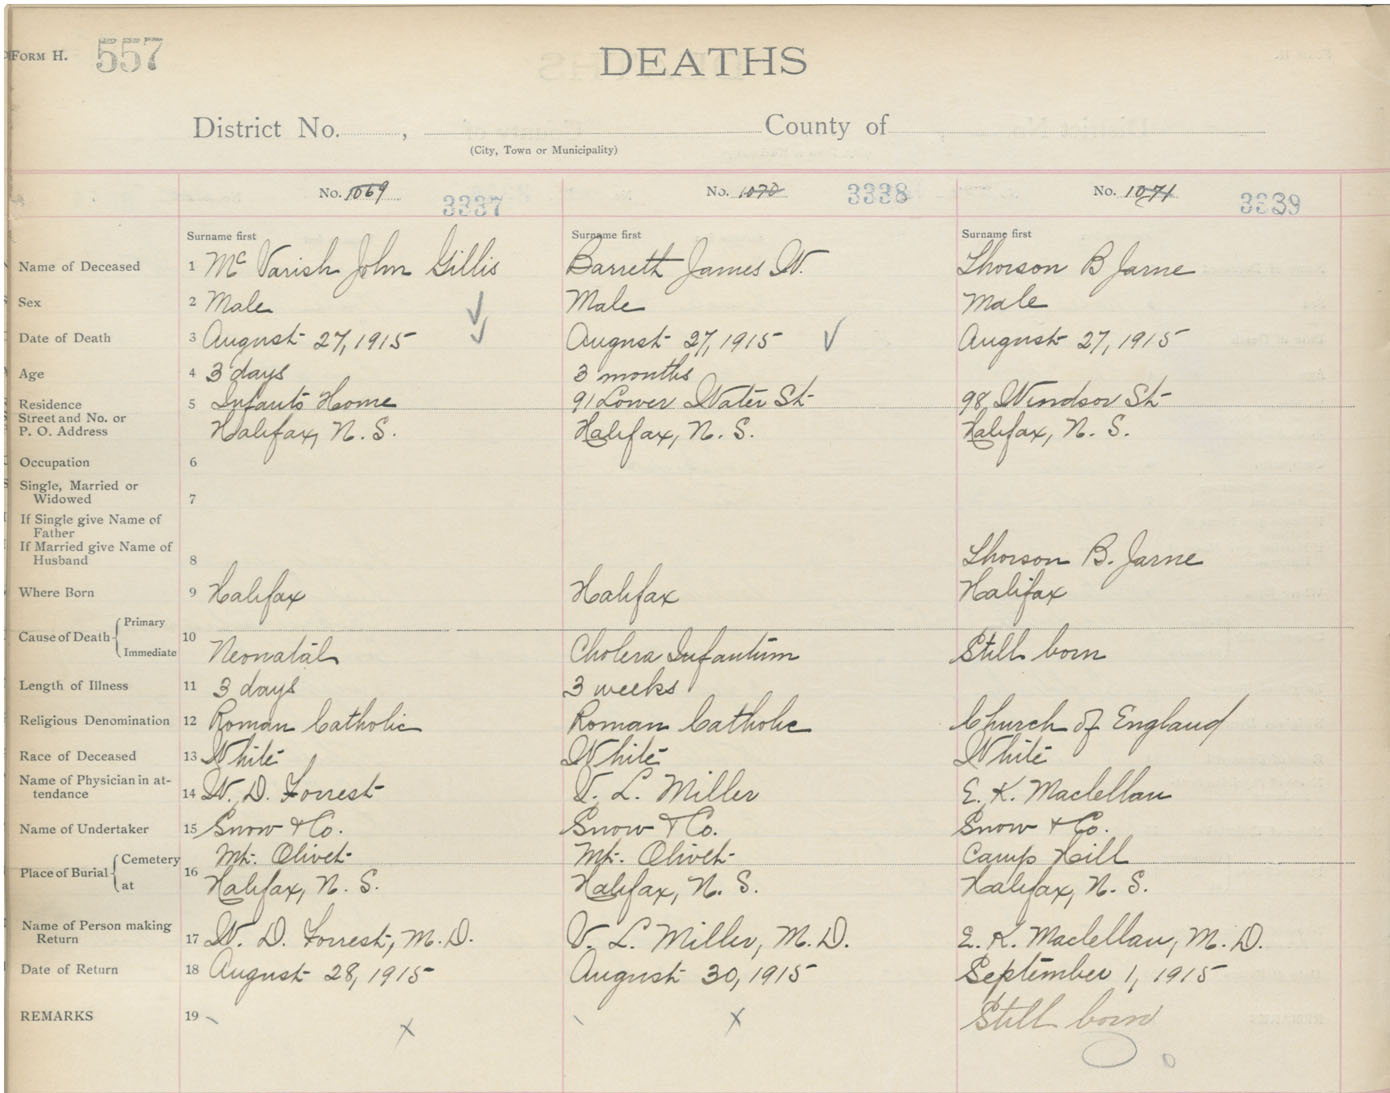 FORM H. 557
DEATHS
District No. , County of
(City, Town or Municipality)
No. 1069 3337 No. 1070 3338 No. 1071 3339
Surname first Surname first Surname first
Name of Deceased 1 Mc Varish John Gillis Barrett James W. Thorson B Jarne
Sex 2 Male Male Male
Date of Death 3 August 27, 1915 August 27, 1915 August 27, 1915
Age 4 3 days 3 months
Residence 5 Infants Home 91 Lower Water St 98 Windsor St
Street and No. or
P. O. Address Halifax, N. S. Halifax, N. S. Halifax, N. S.
Occupation 6
Single, Married or
Widowed 7
If Single give Name of
Father
If Married give Name of
Husband 8 Thorson B. Jarne
Where Born 9 Halifax Halifax Halifax
Primary
Cause of Death 10
Immediate Neonatal Cholera Infantum Still born
Length of Illness 11 3 days 3 weeks
Religious Denomination 12 Roman Catholic Roman Catholic Church of England
Race of Deceased 13 White White White
Name of Physician in at-
tendance 14 W. D. Forrest V. L. Miller E. K. Maclellan
Name of Undertaker 15 Snow & Co. Snow & Co. Snow & Co.
Cemetery Mt. Olivet Mt. Olivet Camp Hill
Place of Burial 16
at Halifax, N. S. Halifax, N. S. Halifax, N. S.
Name of Person making
Return 17 W. D. Forrest, M. D. V. L. Miller, M. D. E. K. Maclellan, M. D.
Date of Return 18 August 28, 1915 August 30, 1915 September 1, 1915
REMARKS 19 x x Still born